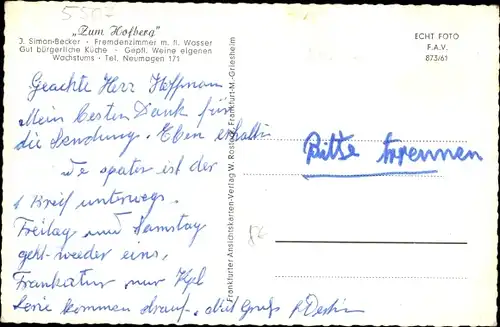 5507
„Zum Hofberg"
J. Simon-Becker · Fremdenzimmer m. fl. Wasser
Gut bürgerliche Küche · Gepfl. Weine eigenen
Wachstums · Tel. Neumagen 171
ECHT FOTO
F.A.V.
873/61
Geachte Herr Hoffmann
Mein besten Dank für
die Sendung. Eben erhalten
später ist der
1 Breif unterwegs.
Freitag und Samstag
geht weeder eins,
Frankatur nur Kpl
Serie kommen drauf. Mit Gruß
Frankfurter Ansichtskarten-Verlag W. Rost Frankfurt-M.-Griesheim
Bitte trennen
56